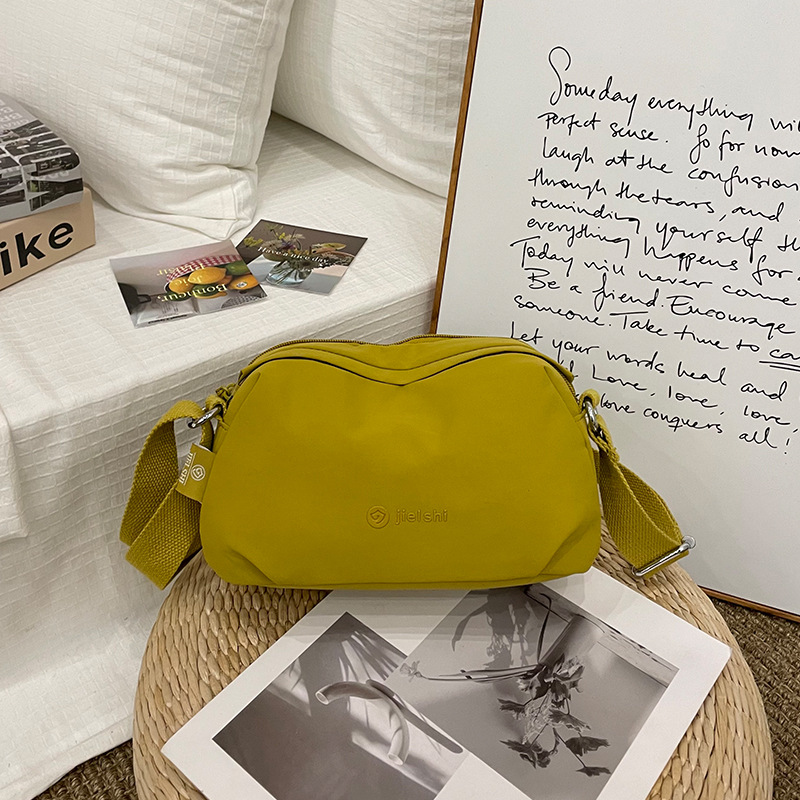 Someday everything will
perfect sense. So for now
laugh at the confusion
through the tears, and
reminding yourself th
everything happens for
Today will never come
Be a friend. Encourage
someone. Take time to ca
Let your words heal and
Love, love, love,
love conquers all!
ike
Have a nice day
Bonheur
Joie
Plaisir
jielshi
JIELSHI